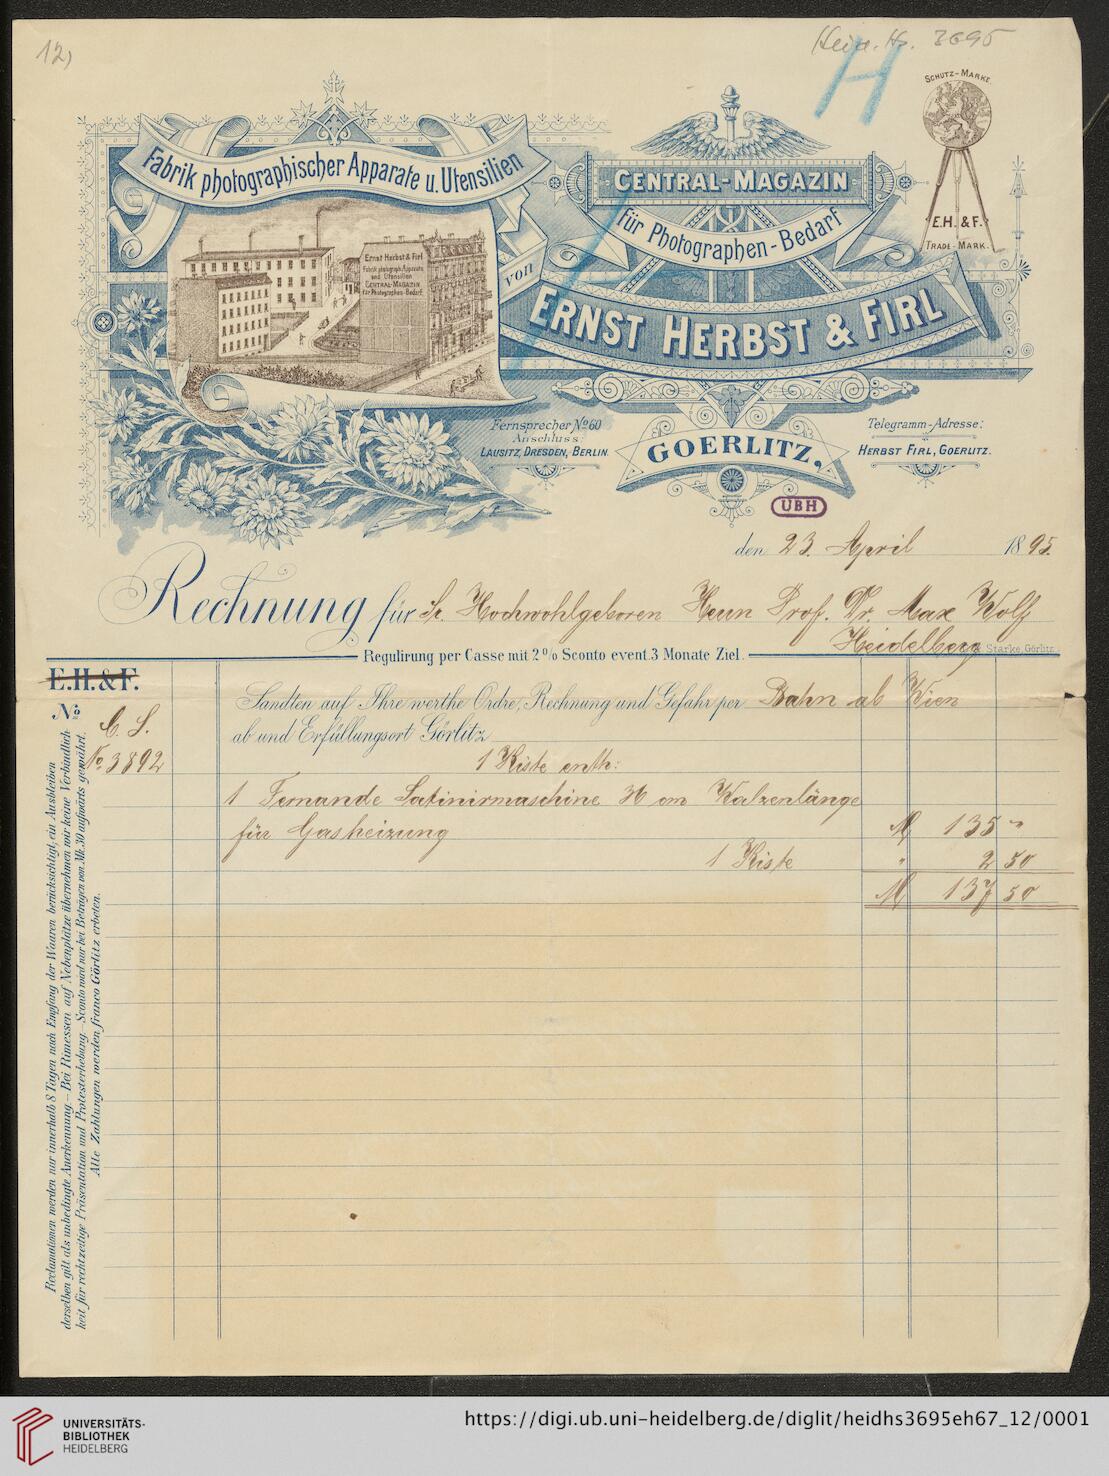 12)
Heid. Hs. 3695
H
SCHUTZ-MARKE.
E.H. & F.
TRADE-MARK.
Fabrik photographischer Apparate u. Utensilien
Ernst Herbst & Firl
Fabrik photograph. Apparate
und Utensilien
CENTRAL-MAGAZIN
für Photographen-Bedarf.
CENTRAL-MAGAZIN
für Photographen-Bedarf
von
ERNST HERBST & FIRL
Fernsprecher No. 60
Anschluss:
LAUSITZ, DRESDEN, BERLIN.
GOERLITZ.
Telegramm-Adresse:
HERBST FIRL, GOERLITZ.
UBH
den 23. April 1895.
Rechnung für Sr. Hochwohlgeboren Herrn Prof. Dr. Max Wolf
Heidelberg
Starke, Görlitz.
Regulirung per Casse mit 2% Sconto event. 3 Monate Ziel.
E.H.&F.
No. C. S.
No. 3892
Sandten auf Ihre werthe Ordre, Rechnung und Gefahr per Bahn ab Wien
ab und Erfüllungsort Görlitz
1 Kiste enth:
1 Fernande Satinirmaschine 36 cm Walzenlänge
für Gasheizung M 135 "
1 Kiste " 2 50
M 137 50
Reclamationen werden nur innerhalb 8 Tagen nach Empfang der Waaren berücksichtigt, ein Ausbleiben
derselben gilt als unbedingte Anerkennung. – Bei Rimessen auf Nebenplätze übernehmen wir keine Verbindlich-
keit für rechtzeitige Präsentation und Protesterhebung. – Sconto wird nur bei Beträgen von Mk. 30 aufwärts gewährt.
Alle Zahlungen werden franco Görlitz erbeten.
UNIVERSITÄTS-
BIBLIOTHEK
HEIDELBERG
https://digi.ub.uni-heidelberg.de/diglit/heidhs3695eh67_12/0001